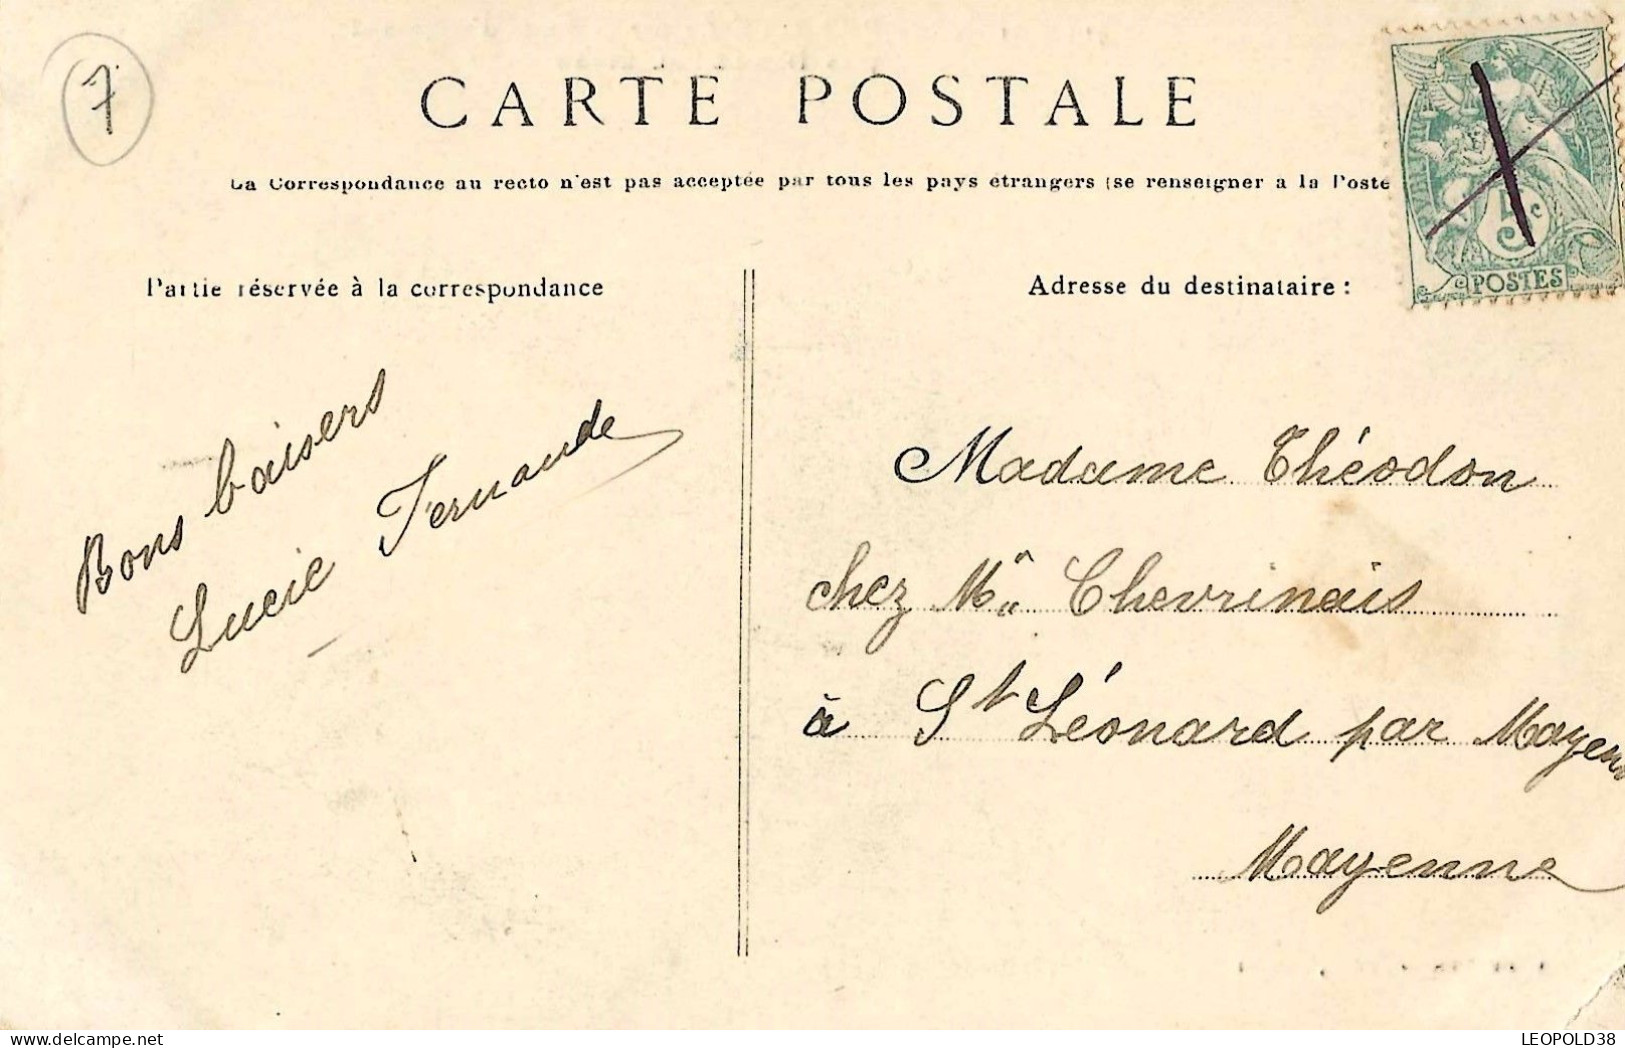 7
CARTE POSTALE
La Correspondance au recto n'est pas acceptée par tous les pays étrangers (se renseigner a la Poste
5c
POSTES
Partie réservée à la correspondance
Adresse du destinataire :
Bons baisers
Lucie Fernande
Madame Théodon
chez Chevrinais
à St Léonard par Mayenne
Mayenne
LEOPOLD38